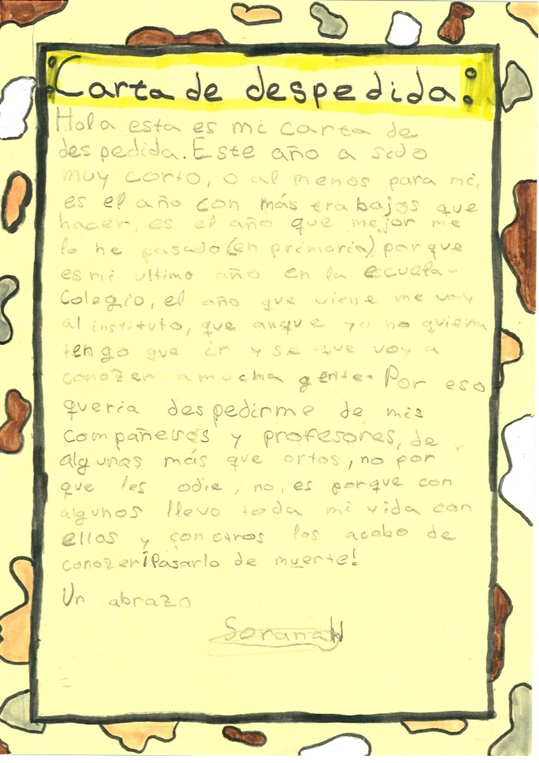 Carta de despedida:
Hola esta es mi carta de
despedida. Este año a sido
muy corto, o al menos para mi,
es el año con más trabajos que
hacer, es el año que mejor me
lo he pasado (en primaria) porque
es mi ultimo año en la escuela-
colegio, el año que viene me voy
al instituto, que anque yo no quiera
tengo que ir y se que voy a
conozer a mucha gente. Por eso
queria despedirme de mis
compañeros y profesores, de
algunos más que ortos, no por
que les odie, no, es porque con
algunos llevo toda mi vida con
ellos y con otros los acabo de
conozer ¡Pasarlo de muerte!
Un abrazo
Sorana